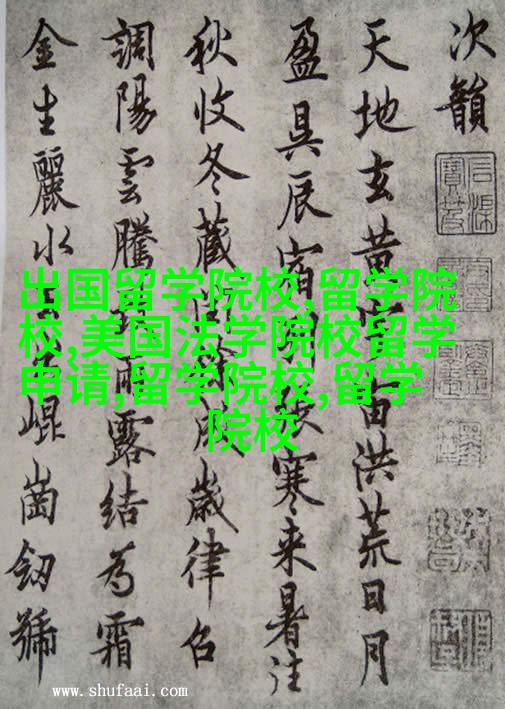 次韻
天地玄黄宙洪荒日月
盈昃辰宿寒来暑往
秋收冬藏成歲律召
調陽雲騰雨露結為霜
金生麗水崐崗劒號
出国留学院校,留学院
校,美国法学院校留学
申请,留学院校,留学
院校
www.shufaai.com